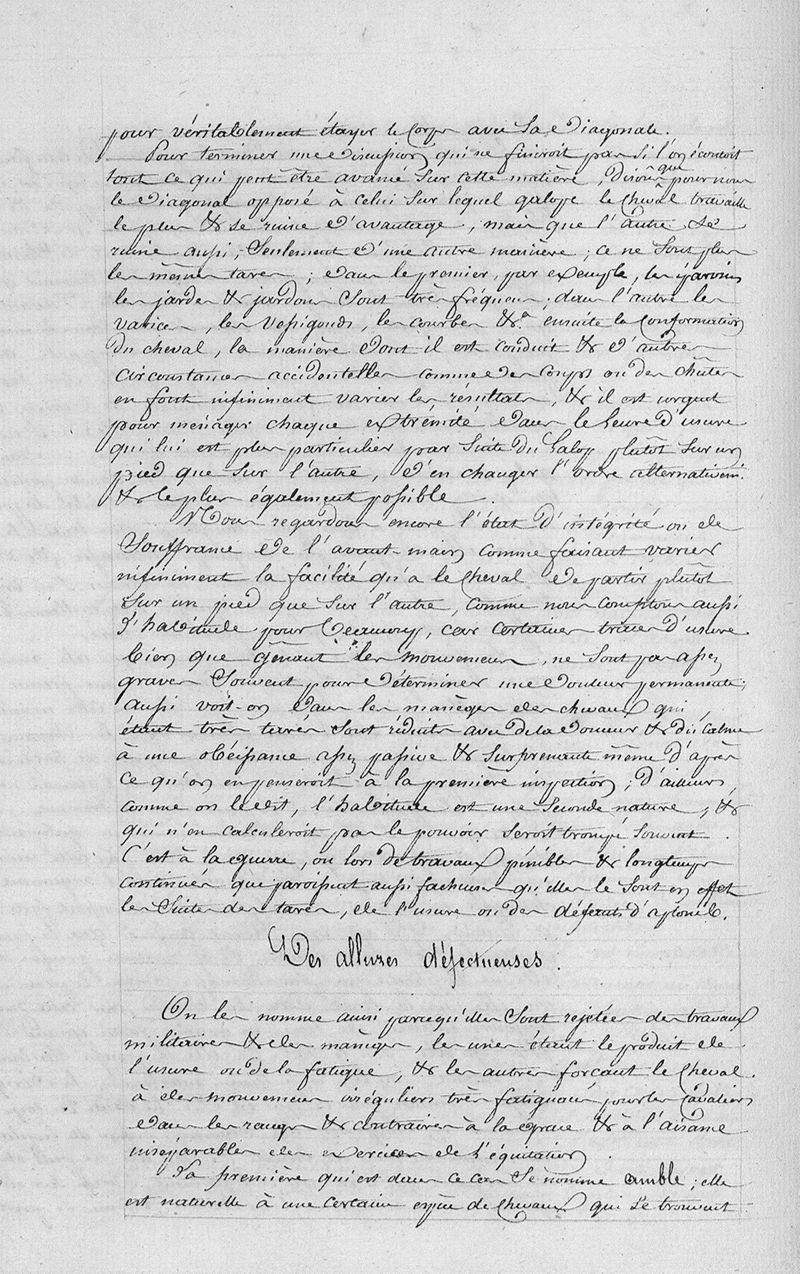 pour véritablement étayer le Corps avec sa Diagonale.
Pour terminer une discussion qui ne finiroit pas si l'on écoutoit
tout ce qui peut être avancé sur cette matière, disons que pour nous
le Diagonal opposé à celui sur lequel galope le Cheval travaille
le plus & se ruine d'avantage, mais que l'autre se
ruine aussi, seulement d'une autre manière; ce ne sont plus
les mêmes tares; dans le premier, par exemple, les éparvins
les jardes & jardons sont très fréquens, dans l'autre les
varices, les vessigonds, les courbes &.a ensuite la Conformation
du cheval, la manière dont il est conduit & d'autres
circonstances accidentelles comme des coups ou des chûtes
en font infiniment varier les résultats, & il est urgent
pour ménager chaque extrémité dans le genre d'usure
qui lui est plus particulier par suite du Galop plutôt sur un
pied que sur l'autre, d'en changer l'ordre alternativem.t
& le plus également possible.
Nous regardons encore l'état d'intégrité ou de
Souffrance de l'avant-main comme faisant varier
infiniment la facilité qu'a le Cheval de partir plutôt
sur un pied que sur l'autre, comme nous comptons aussi
l'habitude pour beaucoup, car certaines traces d'usure
bien que gênant les mouvemens, ne sont pas assez
graves souvent pour déterminer une douleur permanente;
aussi voit-on dans les manèges des chevaux qui,
étant très tarés sont réduits avec de la douceur & du calme
à une obéissance assez passive & surprenante même d'après
ce qu'on en penseroit à la première inspection; d'ailleurs
comme on le dit, l'habitude est une seconde nature, &
qui n'en calculeroit pas le pouvoir seroit trompé souvent.
C'est à la guerre, ou lors de travaux pénibles & longtemps
continués que paroissent aussi facheuses qu'elles le sont en effet
les suites des tares, de l'usure ou des défauts d'aplomb.
Des allures défectueuses.
On les nomme ainsi parcequ'elles sont rejetées des travaux
militaires & des manèges, les unes étant le produit de
l'usure ou de la fatigue, & les autres forçant le Cheval
à des mouvemens irréguliers très fatiguans pour les Cavaliers
dans les rangs & contraires à la grace & à l'aisance
inséparables des exercices de l'équitation.
La première qui est dans ce cas se nomme amble; elle
est naturelle à une certaine espèce de Chevaux qui se trouvent